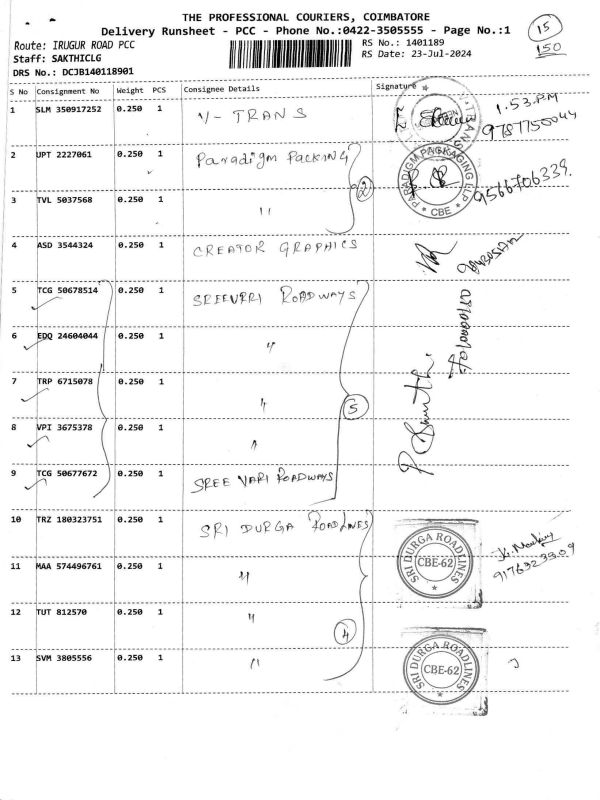 THE PROFESSIONAL COURIERS, COIMBATORE
Delivery Runsheet - PCC - Phone No.:0422-3505555 - Page No.:1
15
150
Route: IRUGUR ROAD PCC
RS No.: 1401189
Staff: SAKTHICLG
RS Date: 23-Jul-2024
DRS No.: DCJB140118901
S No Consignment No Weight PCS Consignee Details Signature
1 SLM 350917252 0.250 1 V- TRANS
1.53.PM
2 UPT 2227061 0.250 1 Paradigm Packing
PARADIGM PACKAGING LLP
* CBE *
9566706339.
2
3 TVL 5037568 0.250 1 "
4 ASD 3544324 0.250 1 CREATOR GRAPHICS
5 TCG 50678514 0.250 1 SREEVARI ROADWAYS
6 EDQ 24604044 0.250 1 "
7 TRP 6715078 0.250 1 "
5
8 VPI 3675378 0.250 1 "
9 TCG 50677672 0.250 1 SREE VARI ROADWAYS
10 TRZ 180323751 0.250 1 SRI DURGA ROADLINES
SRI DURGA ROADLINES
CBE-62
9176323309
11 MAA 574496761 0.250 1 "
12 TUT 812570 0.250 1 "
4
13 SVM 3805556 0.250 1 "
SRI DURGA ROADLINES
CBE-62